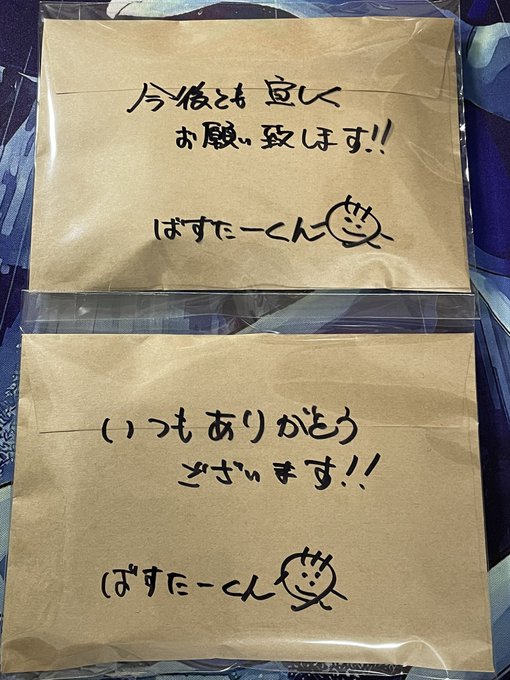 今後とも宜しく
お願い致します!!
ばすたーくん
いつもありがとう
ございます!!
ばすたーくん